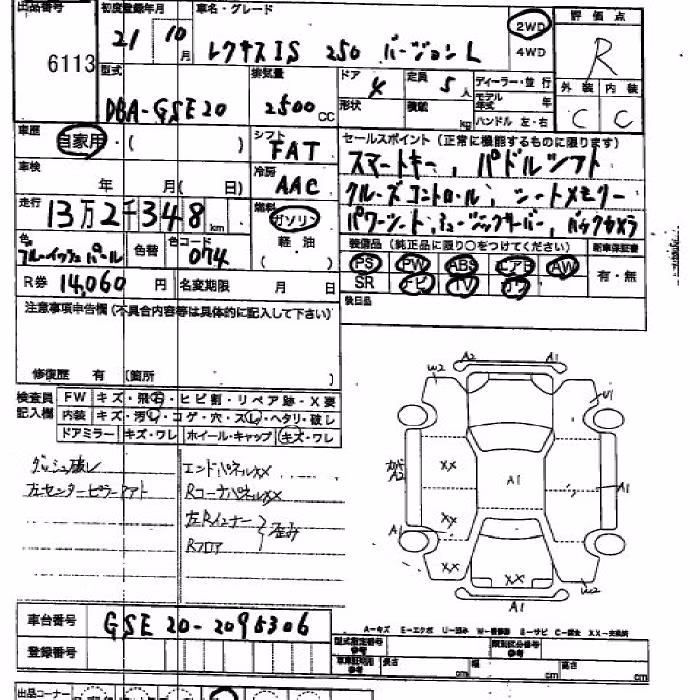 出品番号 6113
初度登録年月 21 10月
車名・グレード レクサスIS 250 バージョンL
2WD
4WD
評価点 R
外装 内装
C C
型式 DBA-GSE20
排気量 2500 CC
ドア 4
定員 5人
形状
積載 kg
ディーラー・並行
モデル年式 年
ハンドル 左・右
車歴 自家用・( )
シフト FAT
車検 年 月( 日)
冷房 AAC
走行 13万2千348 km
燃料 ガソリン
軽油
( )
色 ブルーイッシュパール
色替
色コード 074
R券 14,060 円
名変期限 月 日
セールスポイント(正常に機能するものに限ります)
スマートキー、パドルシフト
クルーズコントロール、シートメモリー
パワーシート、ミュージックサーバー、バックカメラ
装備品(純正品に限り○をつけてください)
新車保証書
PS PW ABS エアB AW
SR ナビ TV カワ
有・無
後日品
注意事項申告欄(不具合内容等は具体的に記入して下さい)
修復歴 有 〔箇所 〕
検査員記入欄
FW キズ・飛石・ヒビ割・リペア跡・X要
内装 キズ・汚れ・コゲ・穴・スレ・ヘタリ・破レ
ドアミラー キズ・ワレ ホイール・キャップ キズ・ワレ
ダッシュ破レ
左センターピラーアト
エンドパネルXX
RコーナパネルXX
左Rインナー
Rフロア
歪み
A2 A1
W2
U1
XX
A1
A2
A1
XY
A1
XX
XX
W2
A1
A-キズ E-エクボ U-凹み W-補修跡 S-サビ C-腐食 XX-交換済
車台番号 GSE20-2095306
登録番号
型式指定番号 参考
類別区分番号 参考
車車証明用 参考 長さ cm 幅 cm 高さ cm
出品コーナー